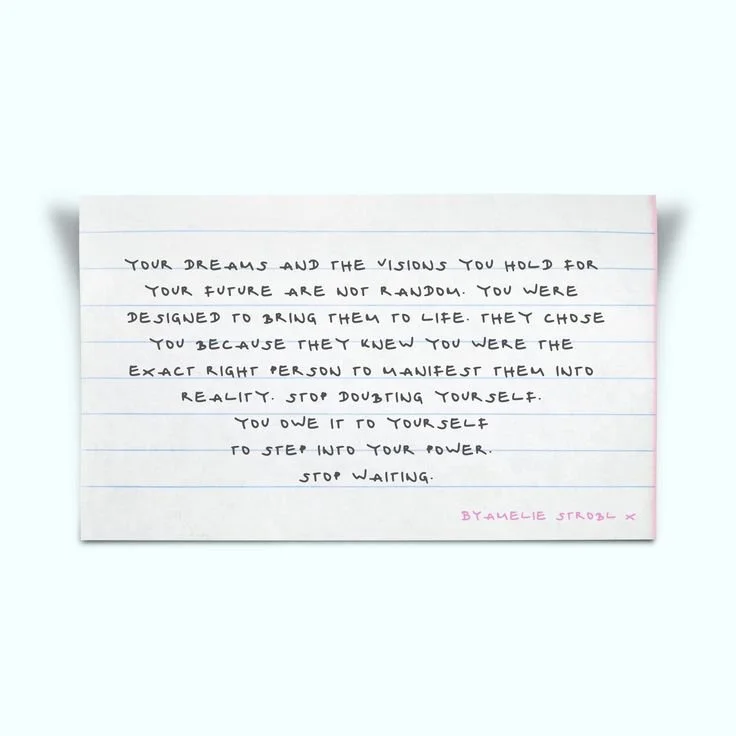 YOUR DREAMS AND THE VISIONS YOU HOLD FOR
YOUR FUTURE ARE NOT RANDOM. YOU WERE
DESIGNED TO BRING THEM TO LIFE. THEY CHOSE
YOU BECAUSE THEY KNEW YOU WERE THE
EXACT RIGHT PERSON TO MANIFEST THEM INTO
REALITY. STOP DOUBTING YOURSELF.
YOU OWE IT TO YOURSELF
TO STEP INTO YOUR POWER.
STOP WAITING.
BY AMELIE STROBL X